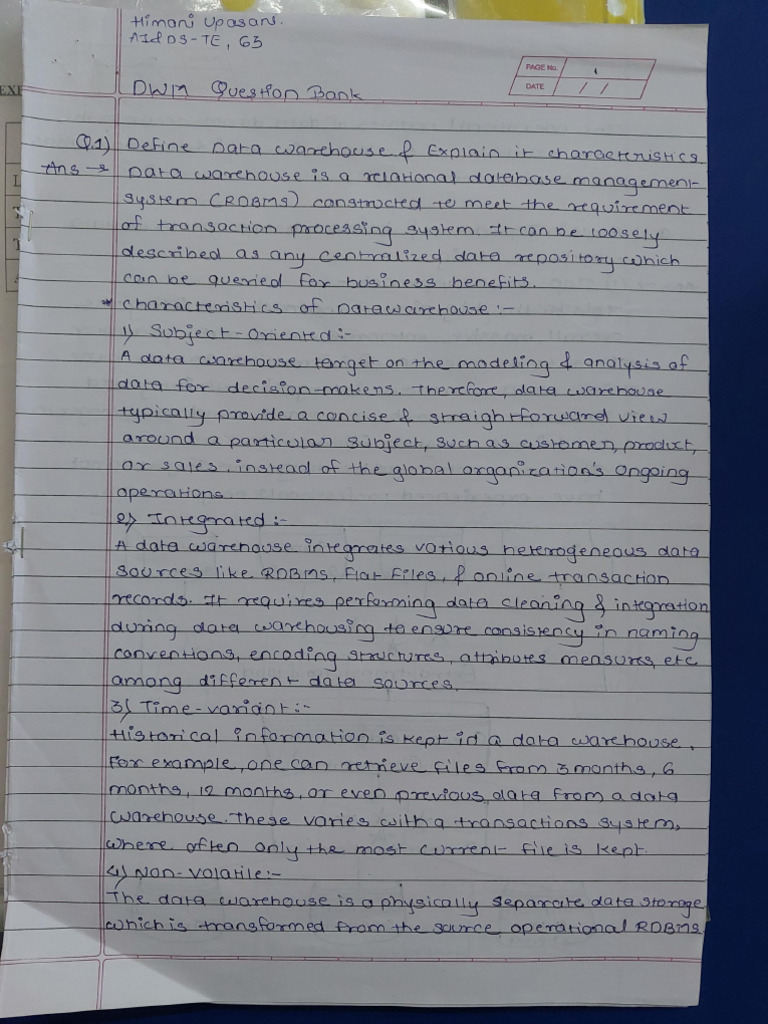 Himani Upasani.
AI&DS-TE, 63
PAGE No. 1
DATE / /
EXP
DWM Question Bank
Q.1) Define Data warehouse & Explain it characteristics
Ans → Data warehouse is a relational database management
system (RDBMS) constructed to meet the requirement
of transaction processing system. It can be loosely
described as any centralized data repository which
can be queried for business benefits.
* characteristics of Datawarehouse :-
1) Subject-Oriented :-
A data warehouse target on the modeling & analysis of
data for decision-makers. Therefore, data warehouse
typically provide a concise & straightforward view
around a particular subject, such as customer, product,
or sales. instead of the global organization's ongoing
operations.
2) Integrated :-
A data warehouse integrates various heterogeneous data
sources like RDBMS, flat files, & online transaction
records. It requires performing data cleaning & integration
during data warehousing to ensure consistency in naming
conventions, encoding structures, attributes measures, etc
among different data sources.
3) Time-variant :-
Historical information is kept in a data warehouse.
For example, one can retrieve files from 3 months, 6
months, 12 months, or even previous data from a data
warehouse. These varies with a transactions system,
where often only the most current file is kept.
4) Non-Volatile :-
The data warehouse is a physically separate data storage,
which is transformed from the source operational RDBMS